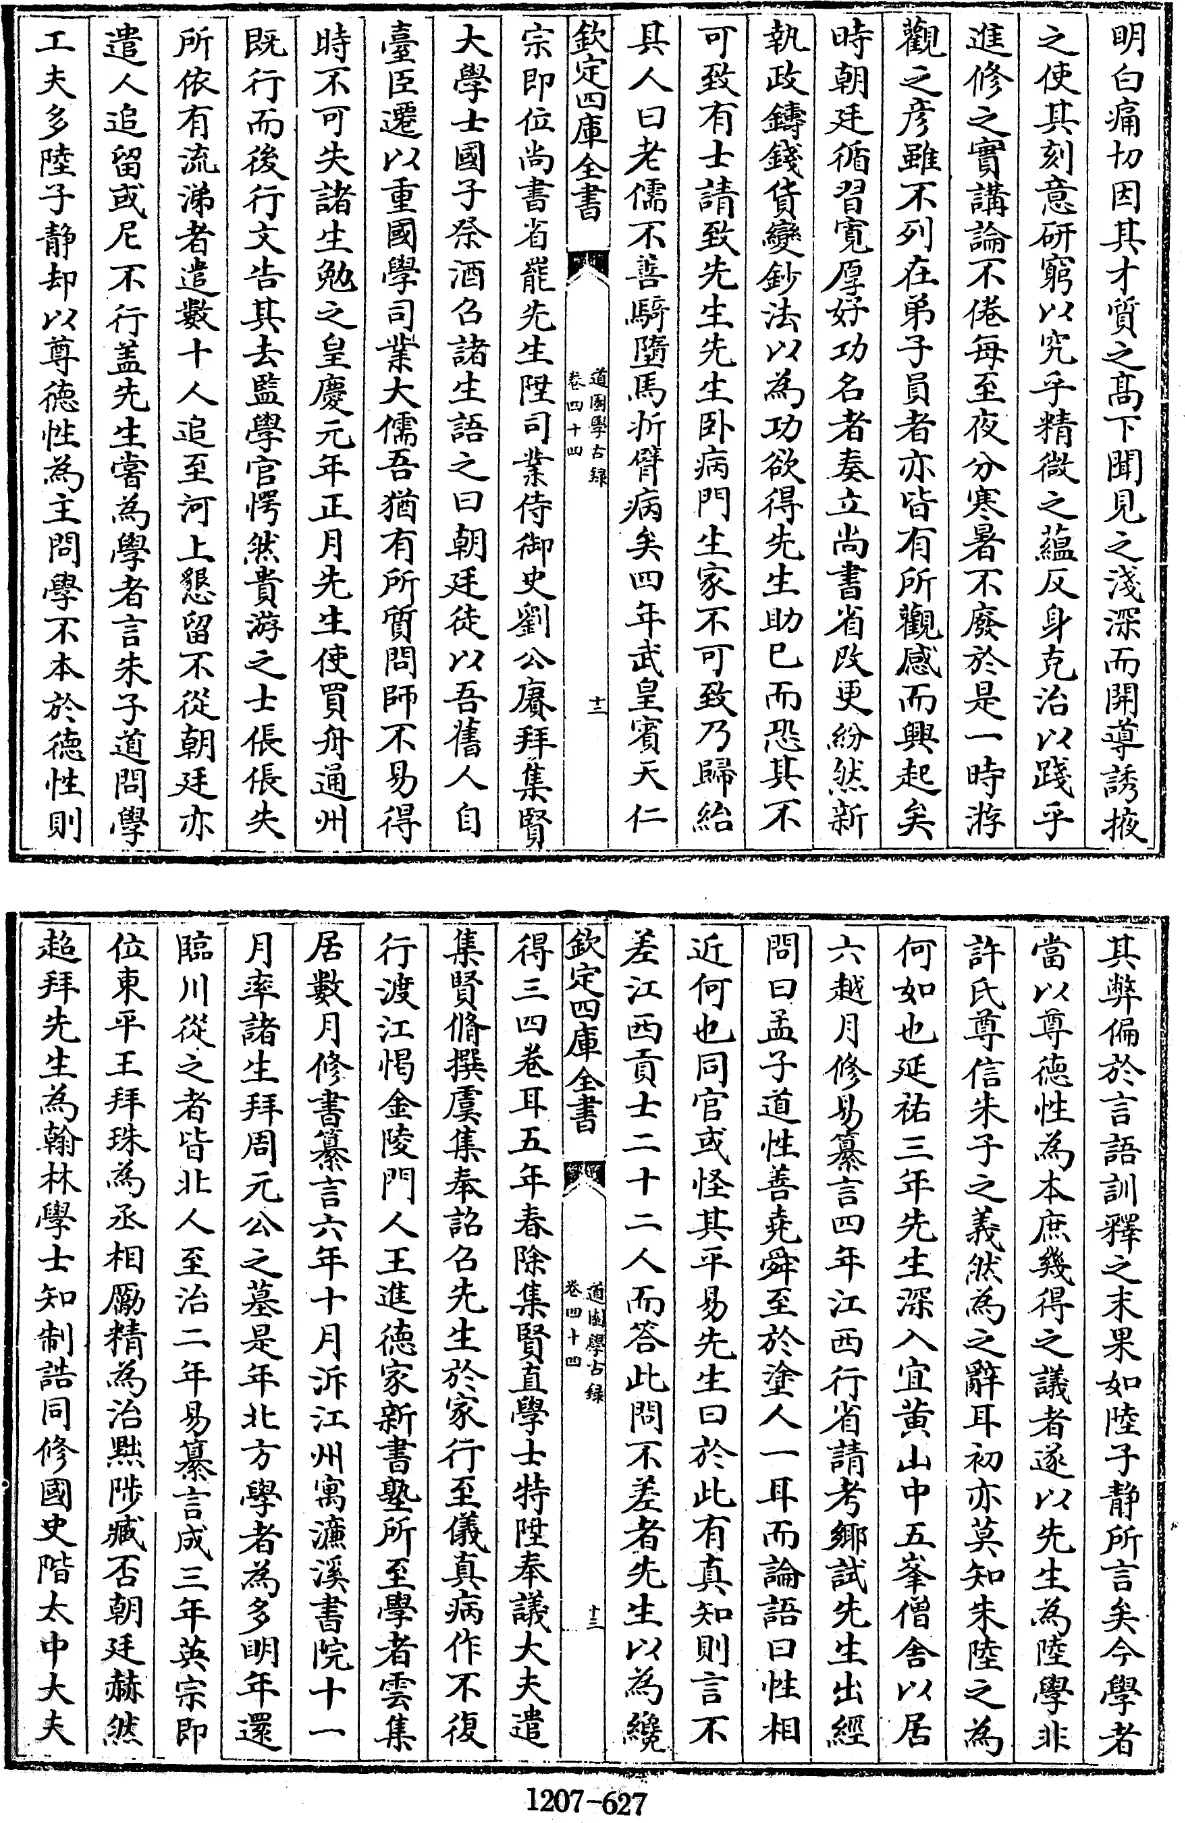 明白痛切因其才質之髙下聞見之淺深而開導誘掖
之使其刻意研窮以究乎精微之藴反身克治以踐乎
進修之實講論不倦每至夜分寒暑不廢於是一時游
觀之彦雖不列在弟子員者亦皆有所觀感而興起矣
時朝廷循習寛厚好功名者奏立尚書省改更紛然新
執政鑄錢貨變鈔法以為功欲得先生助已而恐其不
可致有士請致先生先生卧病門生家不可致乃歸紿
其人曰老儒不善騎墮馬折臂病矣四年武皇賓天仁
欽定四庫全書
道園學古録
卷四十四
十二
宗即位尚書省罷先生陞司業侍御史劉公賡拜集賢
大學士國子祭酒召諸生語之曰朝廷徒以吾舊人自
臺臣遷以重國學司業大儒吾猶有所質問師不易得
時不可失諸生勉之皇慶元年正月先生使買舟通州
既行而後行文告其去監學官愕然貴游之士倀倀失
所依有流涕者遣數十人追至河上懇留不從朝廷亦
遣人追留或尼不行盖先生嘗為學者言朱子道問學
工夫多陸子静却以尊德性為主問學不本於德性則
其弊偏於言語訓釋之末果如陸子静所言矣今學者
當以尊德性為本庶幾得之議者遂以先生為陸學非
許氏尊信朱子之義然為之辭耳初亦莫知朱陸之為
何如也延祐三年先生深入宜黄山中五峯僧舍以居
六越月修易纂言四年江西行省請考鄉試先生出經
問曰孟子道性善堯舜至於塗人一耳而論語曰性相
近何也同官或怪其平易先生曰於此有真知則言不
差江西貢士二十二人而答此問不差者先生以為纔
欽定四庫全書
道園學古録
卷四十四
十三
得三四卷耳五年春除集賢直學士特陞奉議大夫遣
集賢脩撰虞集奉詔召先生於家行至儀真病作不復
行渡江愒金陵門人王進德家新書塾所至學者雲集
居數月修書纂言六年十月泝江州寓濂溪書院十一
月率諸生拜周元公之墓是年北方學者為多明年還
臨川從之者皆北人至治二年易纂言成三年英宗即
位東平王拜珠為丞相勵精為治黜陟臧否朝廷赫然
超拜先生為翰林學士知制誥同修國史階太中大夫
1207-627